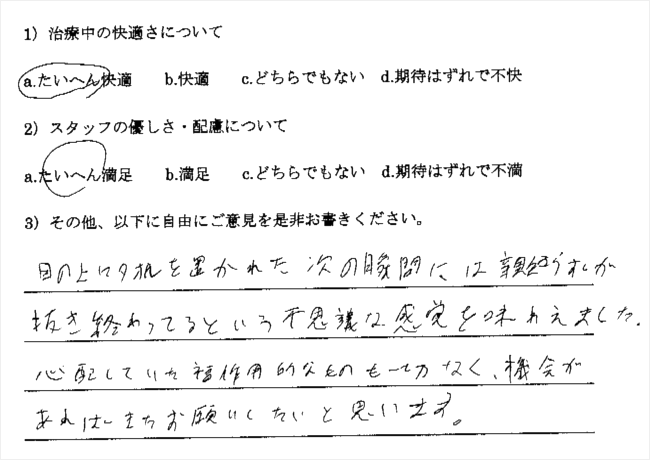 1）治療中の快適さについて
a.たいへん快適　b.快適　c.どちらでもない　d.期待はずれで不快
2）スタッフの優しさ・配慮について
a.たいへん満足　b.満足　c.どちらでもない　d.期待はずれで不満
3）その他、以下に自由にご意見を是非お書きください。
目の上にタオルを置かれた次の瞬間には親知らずが
抜き終わってるという不思議な感覚を味わえました。
心配していた副作用的なものも一切なく、機会が
あればまたお願いしたいと思います。